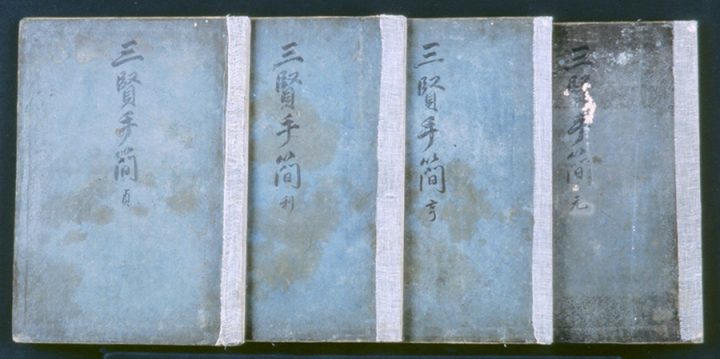 三賢手簡 元
三賢手簡 亨
三賢手簡 利
三賢手簡 貞